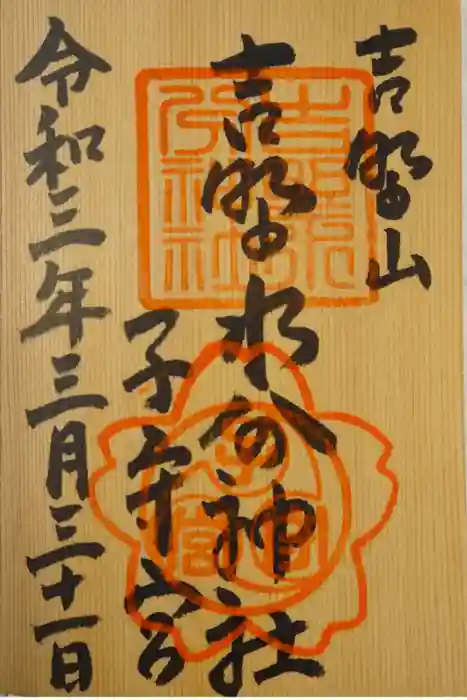 吉野山
吉野水分神社
子守宮
令和三年三月三十一日
吉野水
分神社